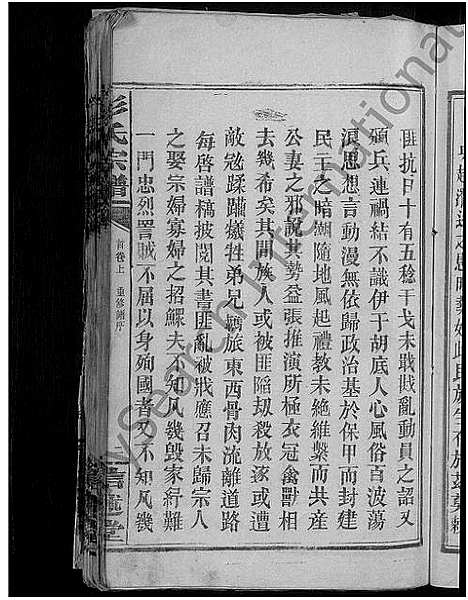 匪抗日十有五稔干戈未戢戡亂動員之詔又
頒兵連禍結不識伊于胡底人心風俗百波蕩
浪思想言動漫無依歸政治基於保甲而封建
民主之暗潮隨地風起禮教未絶維繫而共産
公妻之邪說其勢益張推演所極衣冠禽獸相
去幾希矣其間族人或被匪陷刧殺放逐或遭
敵寇蹂躪犧牲弟兄覊旅東西骨肉流離道路
每啓譜稿披閱其書匪亂被戕應召未歸宗人
之娶宗婦寡婦之招鰥夫不知凡幾毁家紓難
一門忠烈詈賊不屈以身殉國者又不知凡幾
彭氏宗譜
首卷上 重修譜序
堂
MySearch International